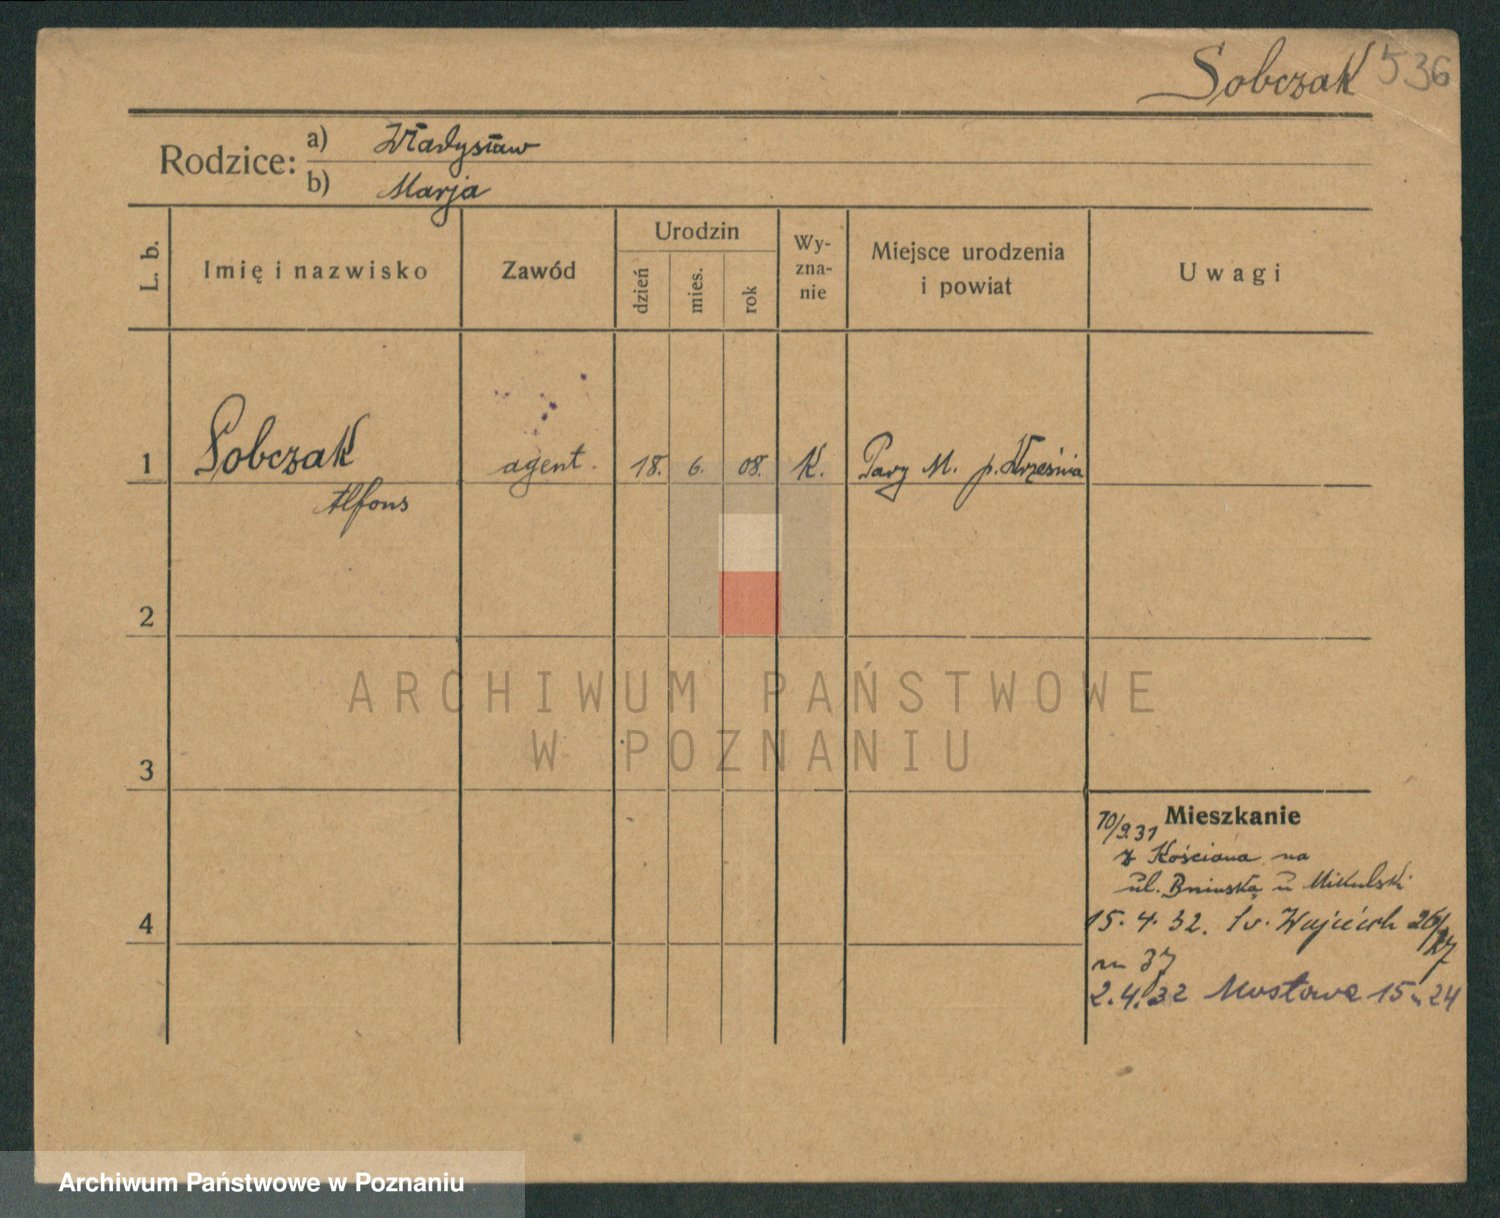 Sobczak 536
Rodzice: a) Władysław
b) Marja
L. b.
Imię i nazwisko
Zawód
Urodzin
dzień
mies.
rok
Wy-
zna-
nie
Miejsce urodzenia
i powiat
Uwagi
1 Sobczak agent. 18. 6. 08. K. M. p. Września
Alfons
2
ARCHIWUM PAŃSTWOWE
W POZNANIU
3
Mieszkanie
10/9.31
z Kościana na
ul. Bnińską u Mikulski
15.4.32. Św. Wojciech 26/27
m 37
2.4.32 Mostowa 15 24
4
Archiwum Państwowe w Poznaniu